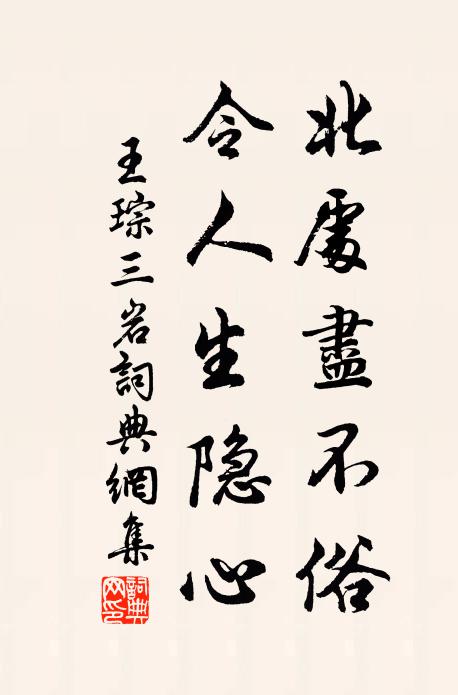 此處盡不俗
令人生隐心
王琮三岩詞典網集
詞典網印